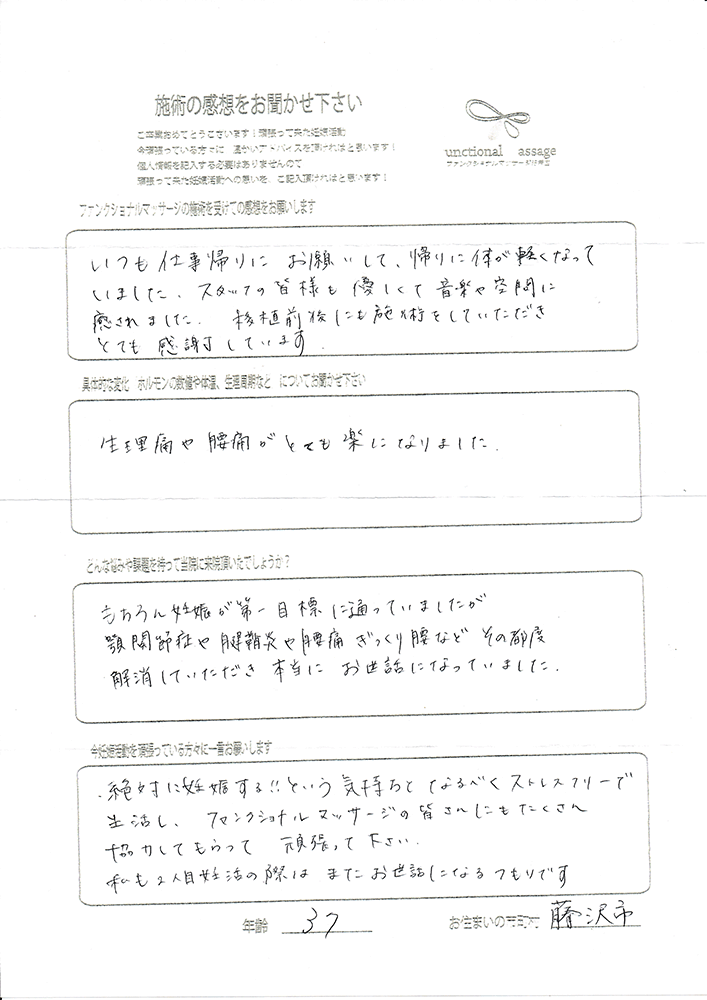 施術の感想をお聞かせ下さい
ご卒業おめでとうございます!頑張って来た妊娠活動
今頑張っている方々に 温かいアドバイスを頂ければと思います!
個人情報を記入する必要はありませんので
頑張って来た妊娠活動への思いを、ご記入頂ければと思います!
unctional assage
ファンクショナルマッサージ
ファンクショナルマッサージの施術を受けての感想をお願いします
いつも仕事帰りに お願いして、帰りに体が軽くなって
いました、スタッフの皆様も優しくて音楽や空間に
癒されました. 移植前後にも施術をしていただき
とても感謝しています.
具体的な変化 ホルモンの数値や体温、生理周期など についてお聞かせ下さい
生理痛や腰痛がとても楽になりました.
どんな悩みや課題を持って当院に来院頂いたでしょうか?
もちろん妊娠が第一目標に通っていましたが
顎関節症や腱鞘炎や腰痛ぎっくり腰など その都度
解消していただき 本当に お世話になっていました.
今妊娠活動を頑張っている方々に一言お願いします
絶対に妊娠する!!という気持ちと なるべくストレスフリーで
生活し、ファンクショナルマッサージの皆さんにもたくさん
協力してもらって 頑張って下さい.
私も2人目妊活の際は またお世話になるつもりです
年齢 37 お住まいの市町 藤沢市